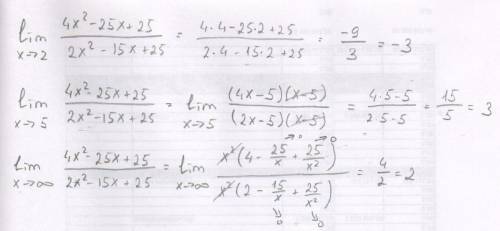 lim x→2 (4x² - 25x + 25)/(2x² - 15x + 25) = (4·4 - 25·2 + 25)/(2·4 - 15·2 + 25) = -9/3 = -3
lim x→5 (4x² - 25x + 25)/(2x² - 15x + 25) = lim x→5 (4x-5)(x-5)/(2x-5)(x-5) = (4·5-5)/(2·5-5) = 15/5 = 3
lim x→∞ (4x² - 25x + 25)/(2x² - 15x + 25) = lim x→∞ x²(4 - 25/x + 25/x²)/x²(2 - 15/x + 25/x²) = 4/2 = 2